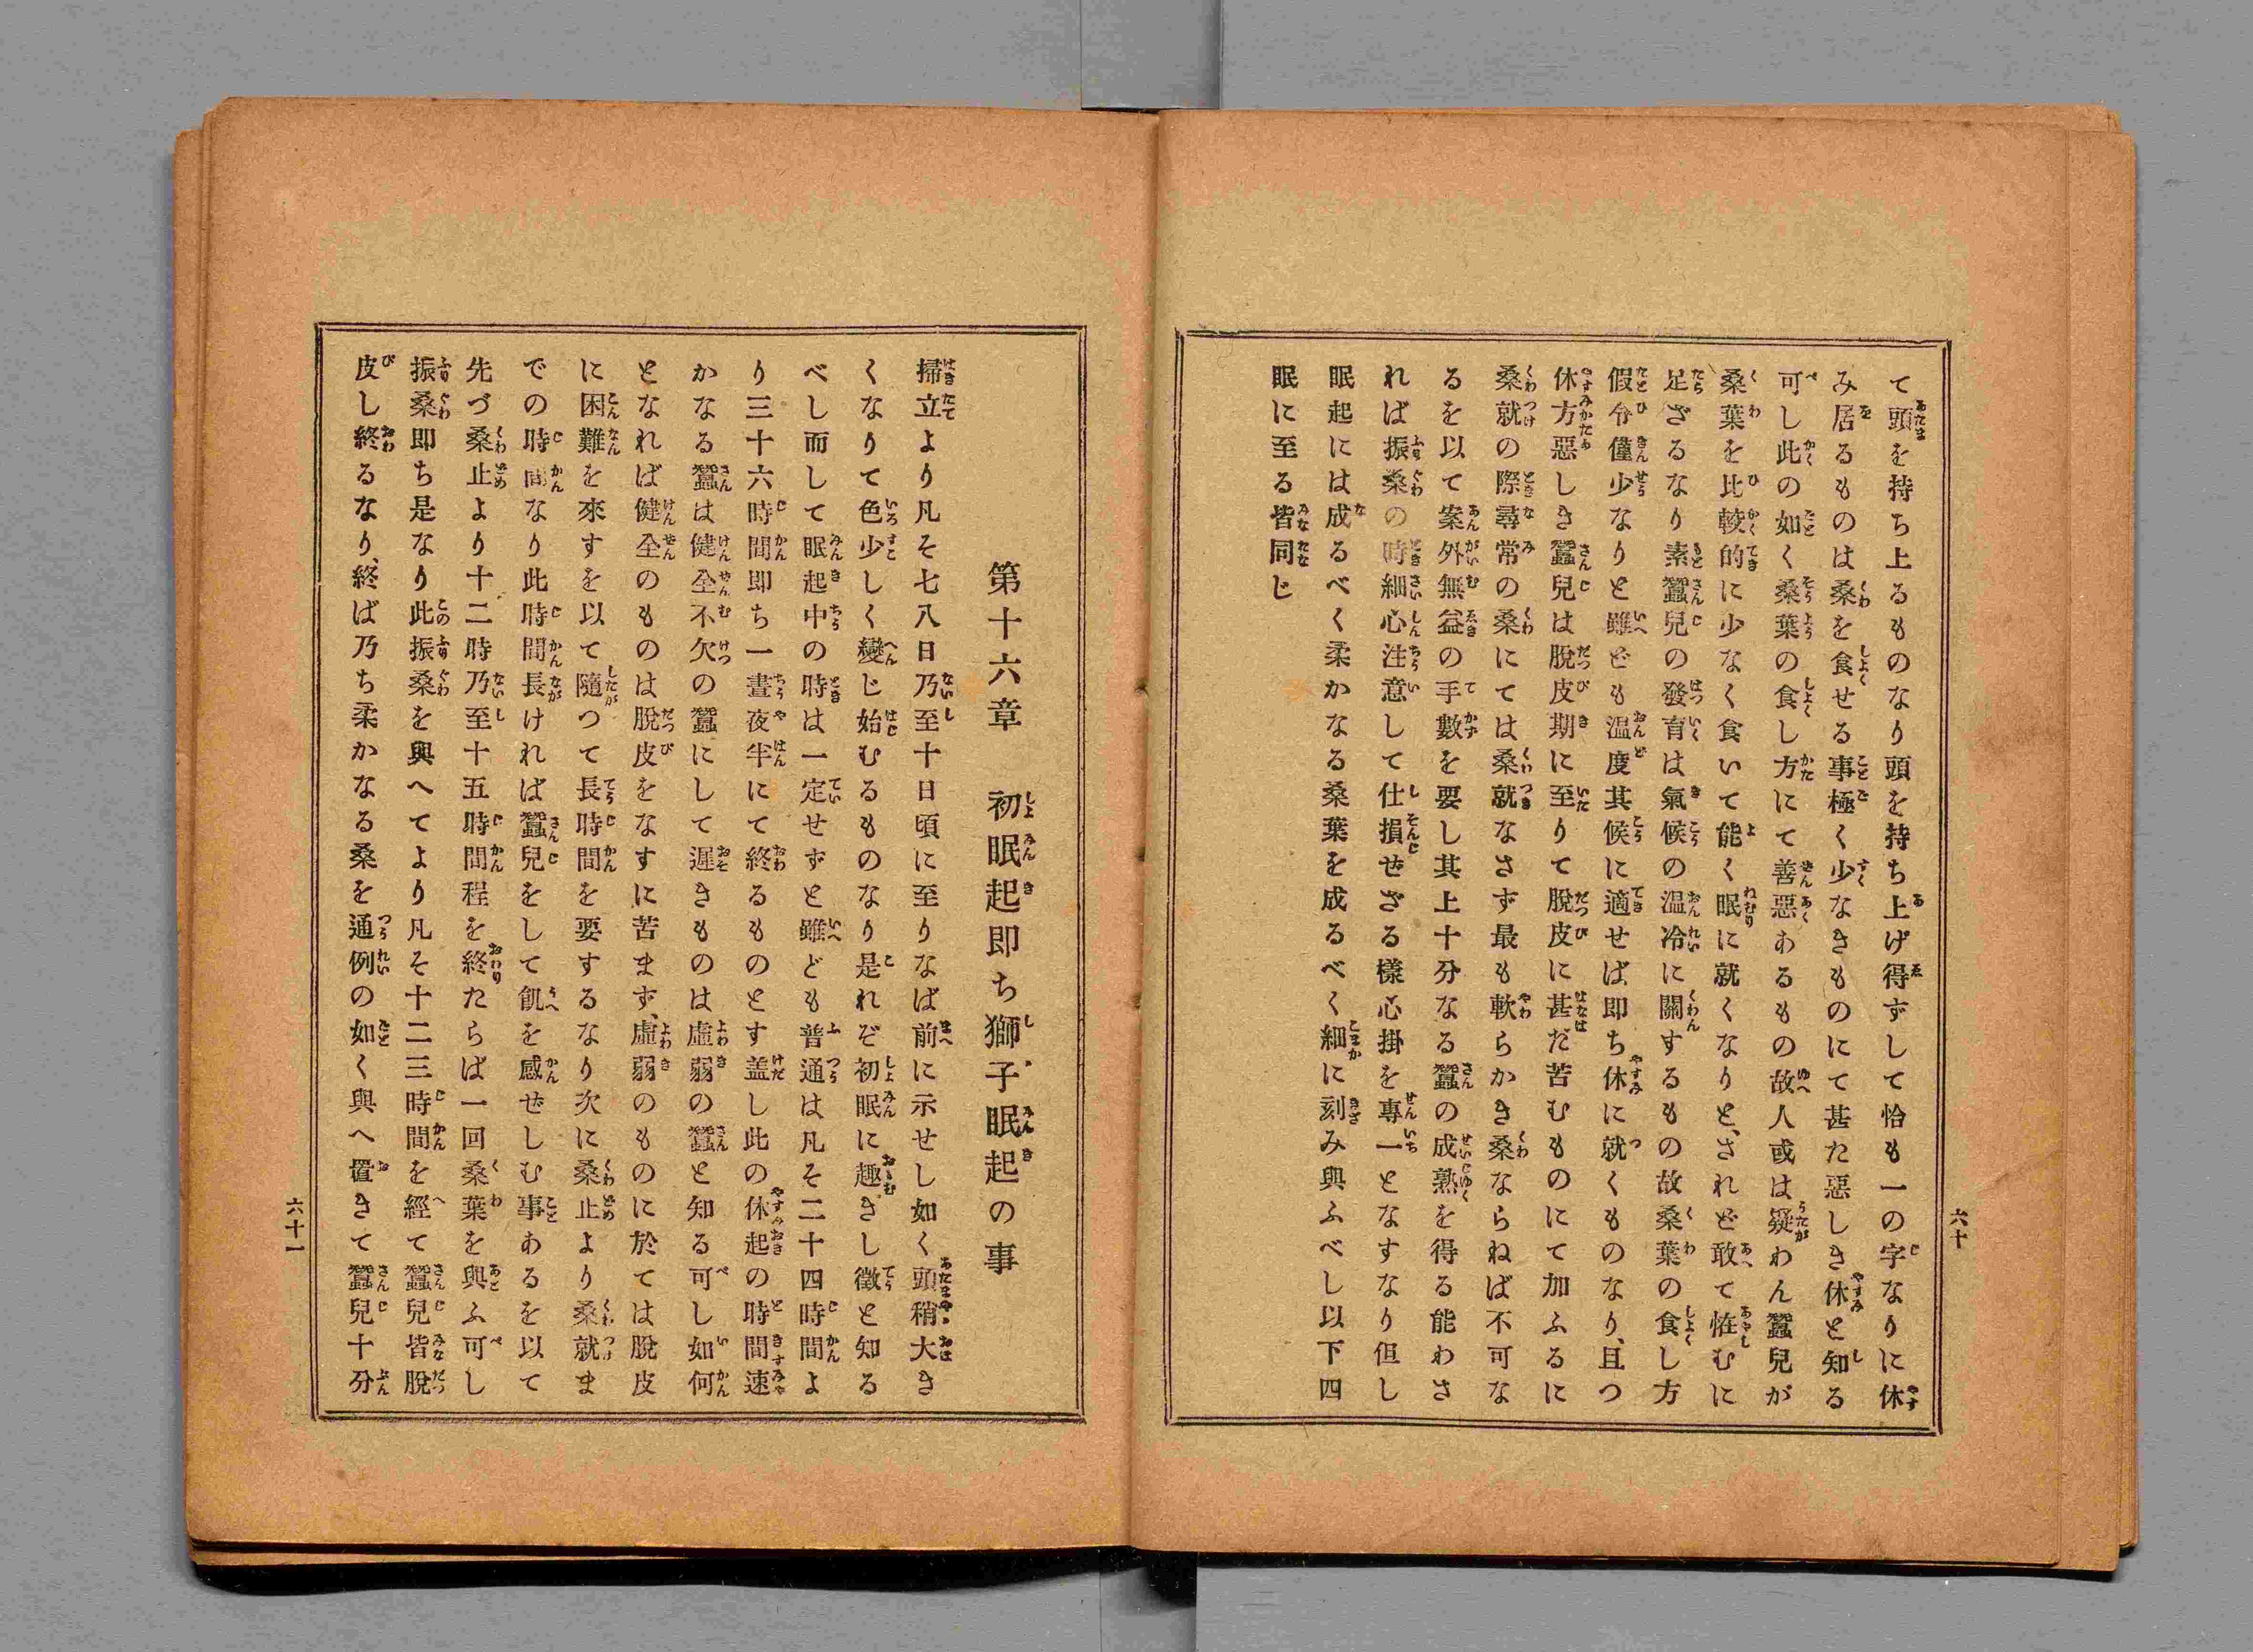 て頭を持ち上るものなり頭を持ち上げ得ずして恰も一の字なりに休
み居るものは桑を食せる事極く少なきものにて甚た惡しき休と知る
可し此の如く桑葉の食し方にて善惡あるもの故人或は疑わん蠶兒が
桑葉を比較的に少なく食いて能く眠に就くなりと、されど敢て恠むに
足ざるなり素蠶兒の發育は氣候の温冷に關するもの故桑葉の食し方
假令僅少なりと雖ども温度其候に適せば、即ち休に就くものなり、且つ
休方惡しき蠶兒は脫皮期に至りて脫皮に甚だ苦むものにて加ふるに
桑就の際尋常の桑にては桑就なさず最も軟らかき桑ならねば不可な
るを以て案外無益の手數を要し其上十分なる蠶の成熟を得る能わさ
れば振桑の時細心注意して仕損せざる樣心掛を專一となすなり但し
眠起には成るべく柔かなる桑葉を成るべく細に刻み與ふべし以下四
眠に至る皆同じ
六十
第十六章　初眠起即ち獅子眠起の事
掃立より凡そ七八日乃至十日頃に至りなば前に示せし如く頭稍大き
くなりて色少しく變じ始むるものなり是れぞ初眠に趣きし徵と知る
べし而して眠起中の時は一定せずと雖ども普通は凡そ二十四時間よ
り三十六時間即ち一晝夜半にて終るものとす盖し此の休起の時間速
かなる蠶は健全不欠の蠶にして遲きものは虛弱の蠶と知る可し如何
となれば健全のものは脫皮をなすに苦まず、虛弱のものに於ては脫皮
に困難を來すを以て隨つて長時間を要するなり次に桑止より桑就ま
での時間なり此時間長ければ蠶兒をして飢を感せしむ事あるを以て
先づ桑止より十二時乃至十五時間程を終たらば一回桑葉を與ふ可し
振桑即ち是なり此振桑を與へてより凡そ十二三時間を經て蠶兒皆脫
皮し終るなり、終ば乃ち柔かなる桑を通例の如く與へ置きて蠶兒十分
六十一